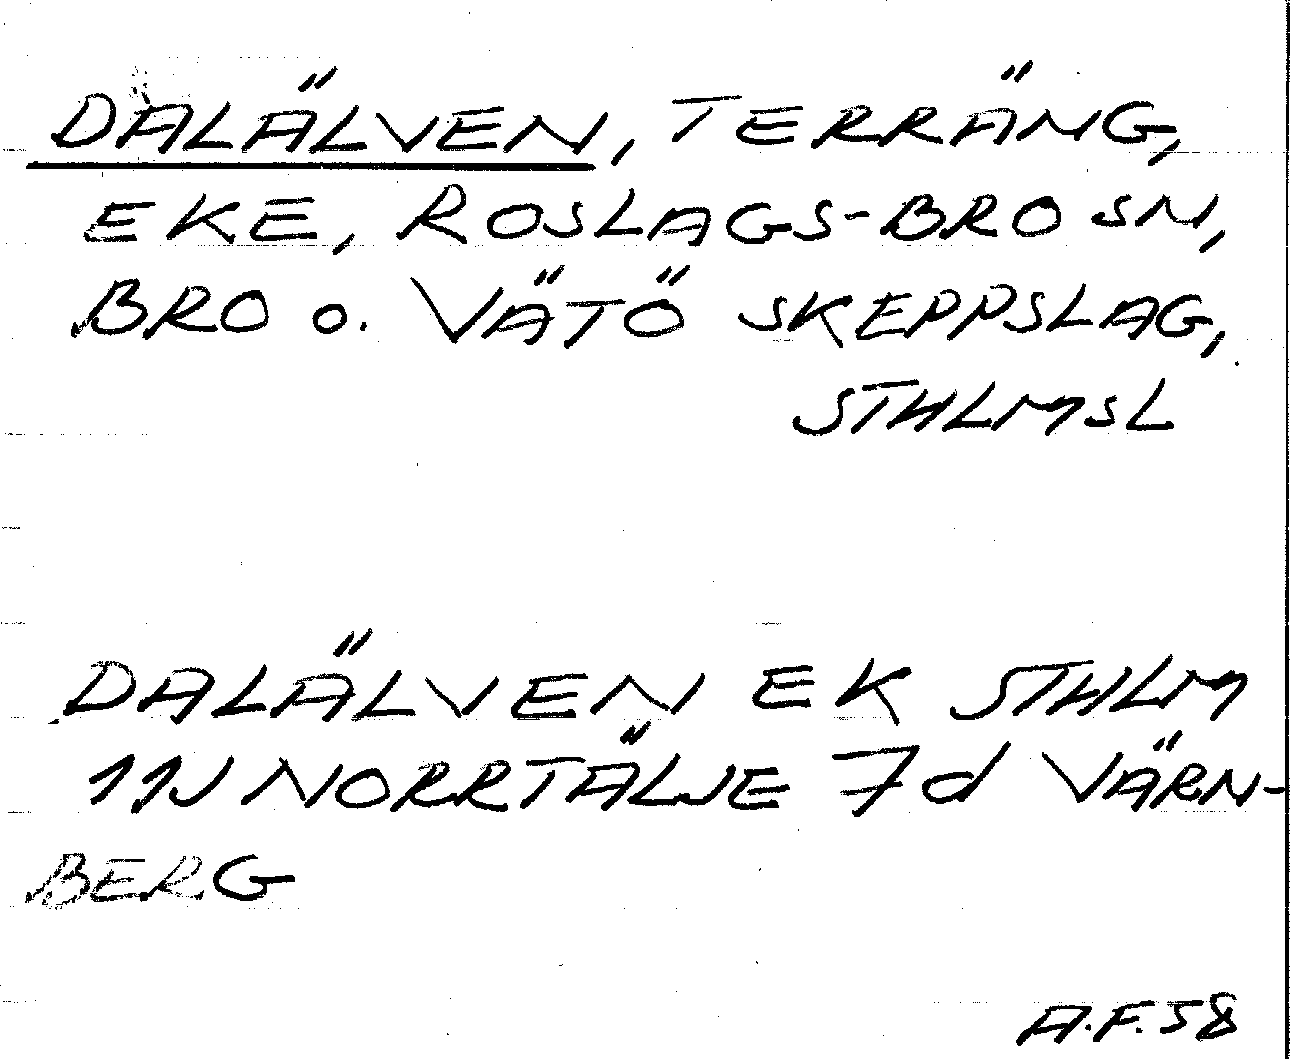 DALÄLVEN, TERRÄNG,
EKE, ROSLAGS-BRO SN,
BRO o. VÄTÖ SKEPPSLAG,
STHLMSL
DALÄLVEN EK STHLM
11J NORRTÄLJE 7d VÄRN-
BERG
A.F. 58